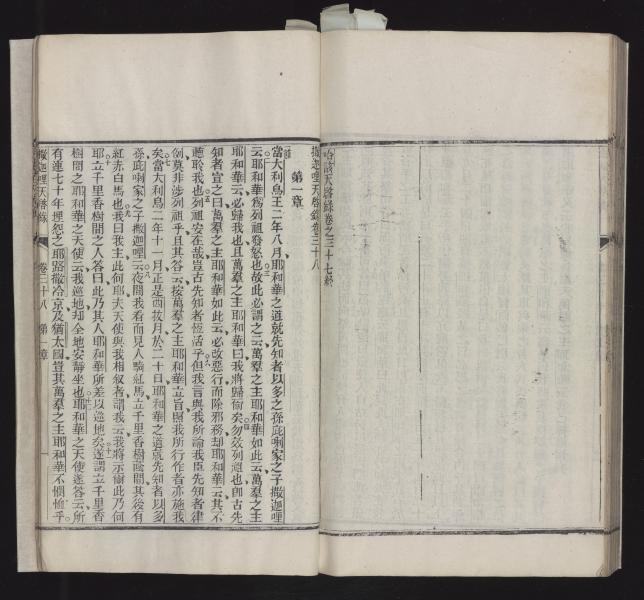 哈該天啓錄卷之三十七終
撒迦哩天啓錄卷三十八
第一章
當大利烏王二年八月耶和華之道就先知者以多之孫庇唎家之子撒迦哩
云耶和華爲列祖發怒也故此必謂之云萬羣之主耶和華如此云萬羣之主
耶和華云必歸我也且萬羣之主耶和華曰我將歸爾矣勿效列祖也卽古先
知者宣之曰萬羣之主耶和華如此云必改惡行而除邪務却耶和華云其不
聽聆我也列祖安在哉豈古先知者恆活乎但我言與我所諭我臣先知者律
例莫非涉列祖乎且其答云按萬羣之主耶和華立旨照我所行作者亦施我
矣當大利烏二年十一月正是西拔月於二十日耶和華之道就先知者以多
孫庇唎家之子撒迦哩云夜間我看而見人騎紅馬立千里香樹蔭間其後有
紅赤白馬也我曰我主此何耶夫天使與我相叙者謂我云我將示爾此乃何
耶立千里香樹間之人答曰此乃其人耶和華所差以巡地矣遂謂立千里香
樹間之耶和華之天使云我巡地却全地安靜坐也耶和華之天使遂答云所
有連七十年埋怨之耶路撒冷京及猶太國豈其萬羣之主耶和華不憫恤乎
撒迦哩天啓錄 卷三十八 第一章 一